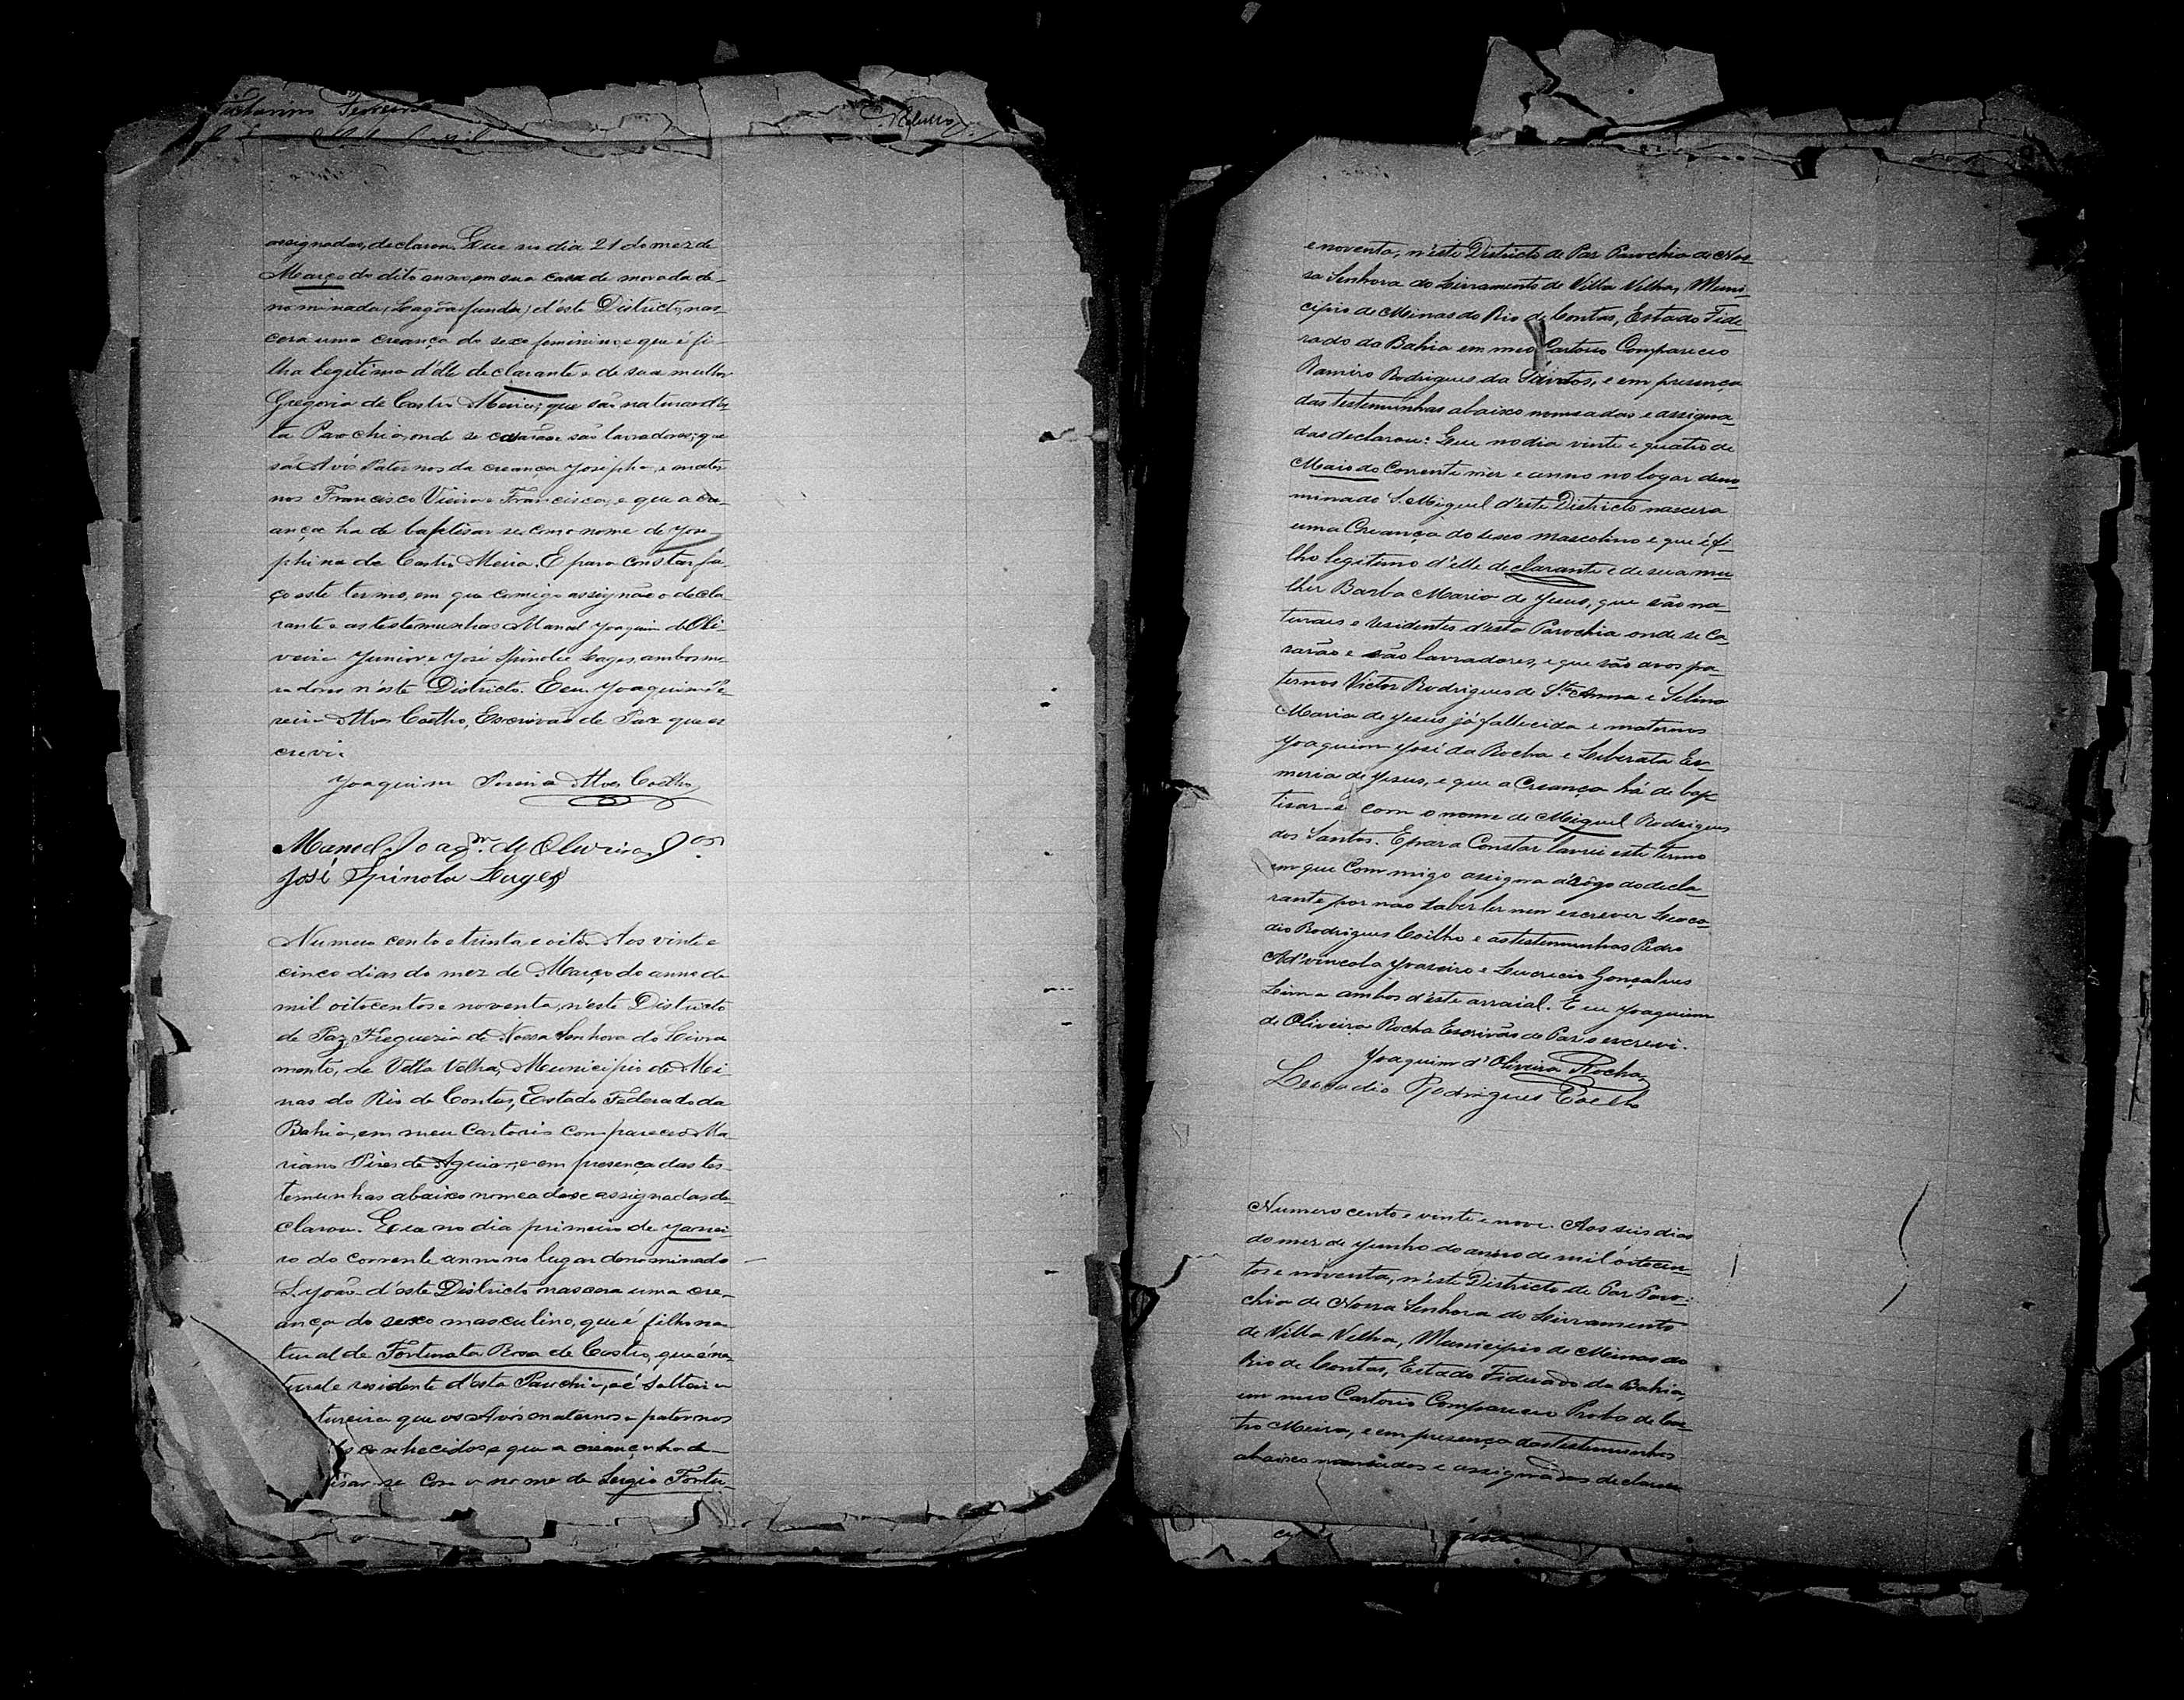 assignadas, declarou. Que no dia 21 do mez de
Março do dito anno, em sua casa de morada de-
nominada, Lagôa funda, d'este Districto, nas-
cera uma creança do sexo feminino, e que é fi-
lha legitima d'elle declarante e de sua mulher
Gregoria de Castro Meira; que são naturaes d'es-
ta Parochia, onde se casarão e são lavradores; que
são Avós Paternos da creança Josepha, e mater
nos Francisco Vieira e Francisca, e que a cre-
ança ha de baptisar-se com o nome de Jose-
phina de Castro Meira. E para constar fa-
ço este termo, em que comigo assignão o decla-
rante e as testemunhas Manoel Joaquim de Oli-
veira Junior e José Spinola Lages, ambos mo-
radores n'este Districto. E eu Joaquim Pe-
reira Alves Coelho, Escrivão de Paz que es
crevi.
Joaquim Pereira Alves Coelho
Manoel Joaqm. de Oliveira Jor.
José Spinola Lages
Numero cento e trinta e oito. Aos vinte e
cinco dias do mez de Março do anno de
mil oitocentos e noventa, n'este Districto
de Paz, Freguezia de Nossa Senhora do Livra
mento, de Villa Velha, Municipio de Mi-
nas do Rio de Contas, Estado Federado da
Bahia, em meu Cartorio compareceo Ma-
riano Pires de Aguiar, e em presença das tes-
temunhas abaixo nomeadas e assignadas de-
clarou. Que no dia primeiro de Janei-
ro do corrente anno no lugar denominado
S. João d'este Districto nascera uma cre-
ança do sexo masculino, que é filho na-
tural de Fortunata Rosa de Castro, que é na-
tural e residente d'esta Parochia, e é solteira
que os Avós maternos e paternos
conhecidos, e que a creança ha de
tisar-se com o nome de Sergio Fortu-
e noventa, n'este Districto de Paz Parochia de Nos-
sa Senhora do Livramento de Villa Velha, Muni-
cipio de Minas do Rio de Contas, Estado Fide-
rado da Bahia em meo Cartorio Compareceo
Ramiro Rodrigues da Santos, e em presença
das testemunhas abaixo nomeadas e assigna-
das declarou: Que no dia vinte e quatro de
Maio do Corrente mez e anno no logar deno-
minado S. Miguel d'este Districto nascera
uma Creança do sexo mascolino e que é fi-
lho legitimo d'elle declarante e de sua mu-
lher Barba Maria de Jesus, que são na-
turaes e residentes d'esta Parochia onde se Ca-
sarão e são lavradores, e que são avos pa-
ternos Victor Rodrigues de Sta Anna e Selina
Maria de Jesus já fallecida e maternos
Joaquim José da Rocha e Liberata Es-
meria de Jesus, e que a Creança há de bap-
tisar-se com o nome de Miguel Rodrigues
dos Santos. E para Constar lavrei este termo
em que Commigo assigna á rôgo do decla-
rante por nao saber ler nem escrever Leoca-
dio Rodrigues Coilho e as testemunhas Pedro
Ad'vincola Joazeiro e Lucrecio Gonçalves
Lima ambos d'este arraial. E eu Joaquim
de Oliveira Rocha Escrivão de Paz o escrevi.
Joaquim d'Oliveira Rocha
Leocadio Rodrigues Coelho
Numero cento e vinte e nove. Aos seis dias
do mez de Junho do anno de mil oitocen-
tos e noventa, n'este Districto de Paz Paro-
chia de Nossa Senhora do Livramento
de Villa Velha, Municipio de Minas do
Rio de Contas, Estado Fiderado da Bahia,
em meo Cartorio Compareceo Probo de Cas-
tro Meira, e em presença das testemunhas
abaixo nomeados e assignadas declarou